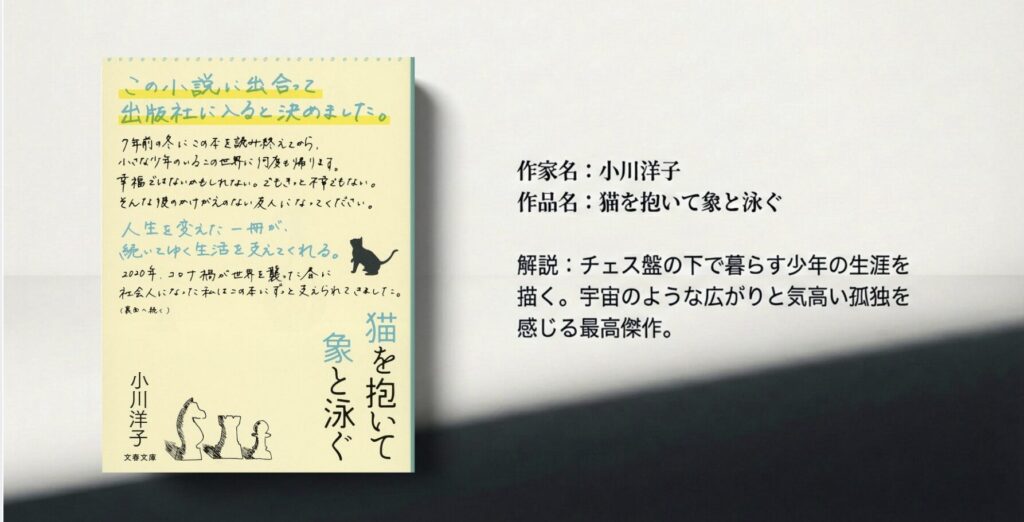 この小説に出合って
出版社に入ると決めました。
7年前の冬にこの本を読み終えてから、
小さな少年のいるこの世界に何度も帰ります。
幸福ではないかもしれない。でもきっと不幸でもない。
そんな彼のかけがえのない友人になってください。
人生を変えた一冊が、
続いてゆく生活を支えてくれる。
2020年、コロナ禍が世界を襲った春に
社会人になった私はこの本にずっと支えられてきました。
(裏面へ続く)
猫を抱いて
象と泳ぐ
小川洋子
文春文庫
作家名：小川洋子
作品名：猫を抱いて象と泳ぐ
解説：チェス盤の下で暮らす少年の生涯を
描く。宇宙のような広がりと気高い孤独を
感じる最高傑作。